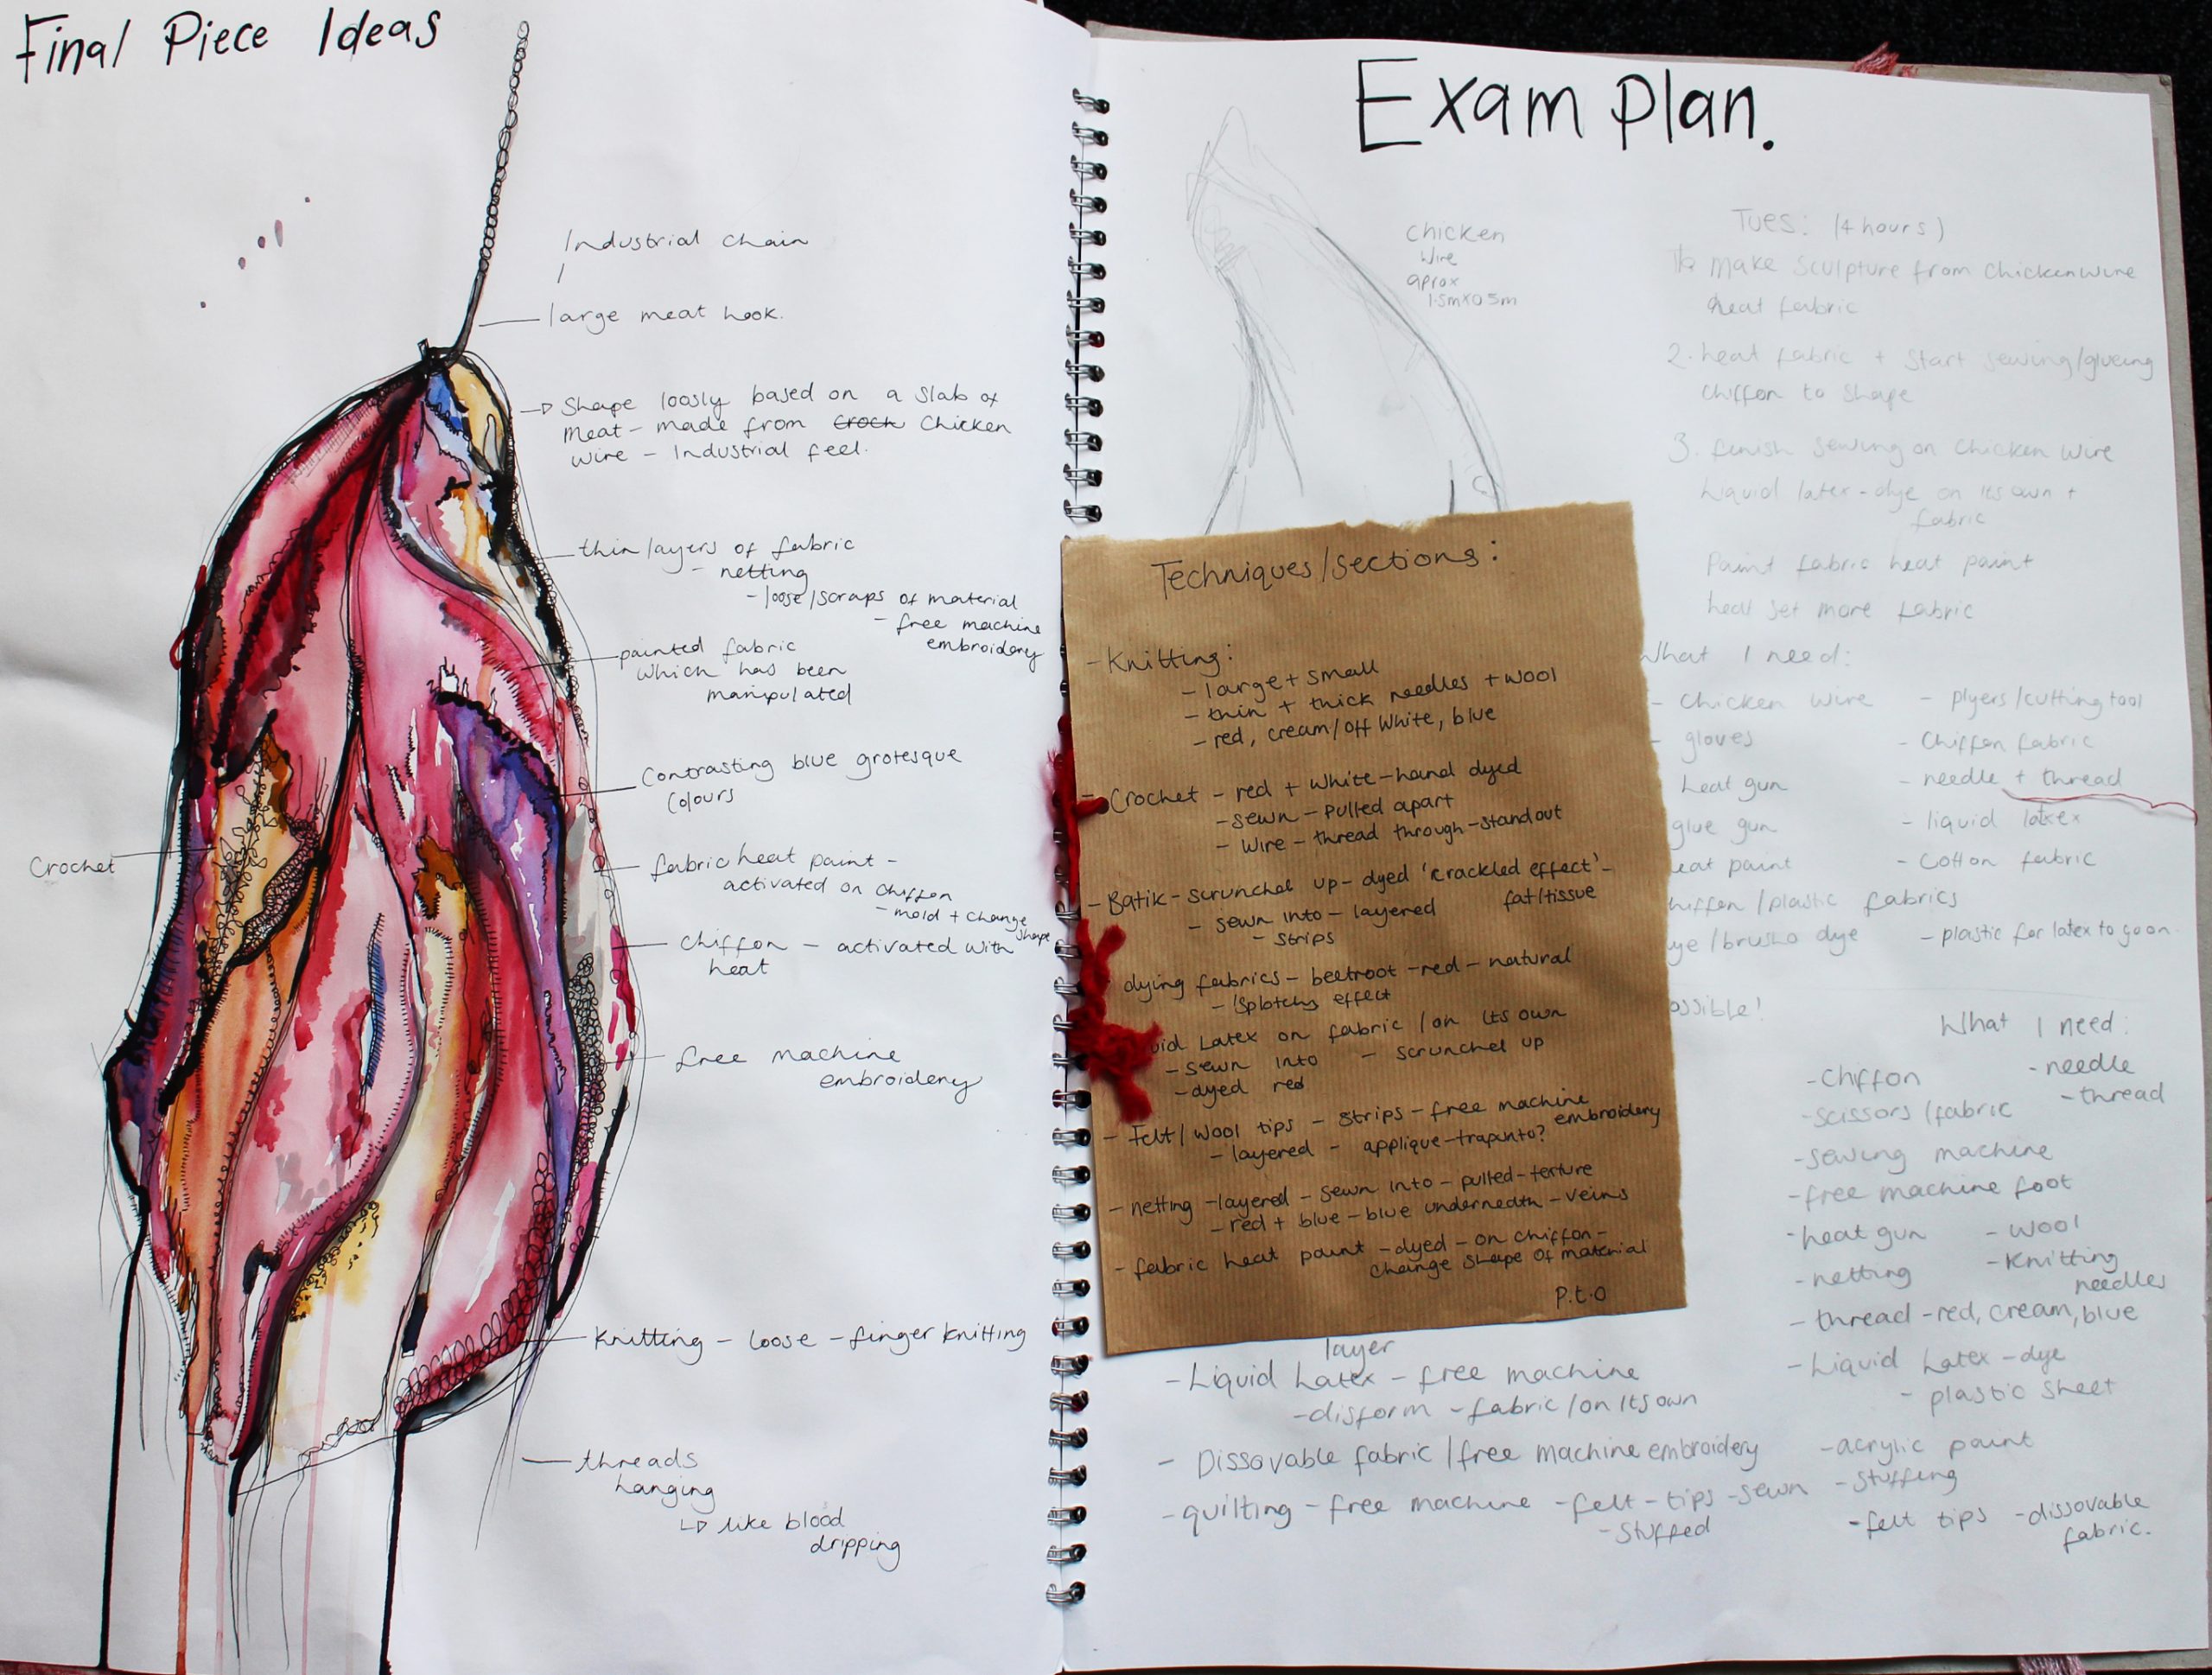 Final Piece Ideas
Industrial chain
large meat hook.
Shape loosly based on a slab of
meat - made from croch chicken
wire - Industrial feel.
thin layers of fabric
- netting
- loose/scraps of material
- free machine
embroidery
painted fabric
which has been
manipulated
Contrasting blue grotesque
colours
Crochet
fabric heat paint -
activated on chiffon
- mold + change
shape
chiffon - activated with
heat
free machine
embroidery
Knitting - loose - finger knitting
threads
hanging
like blood
dripping
Exam Plan.
Chicken
wire
aprox
1.5m x 0.5m
Tues: (4 hours)
make sculpture from chickenwire
heat fabric
2. heat fabric + start sewing/glueing
chiffon to shape
3. finish sewing on chicken wire
Liquid latex - dye on its own +
fabric
Paint fabric heat paint
heat set more fabric
What I need:
- Chicken wire - plyers/cutting tool
- gloves - Chiffon fabric
heat gun - needle + thread
glue gun - liquid latex
eat paint - cotton fabric
hiffon/plastic fabrics
ye/brusho dye - plastic for latex to go on.
ossible!
Techniques/sections:
- Knitting:
- large + small
- thin + thick needles + wool
- red, cream/off white, blue
- Crochet - red + white - hand dyed
- sewn - pulled apart
- wire - thread through - stand out
- Batik - scrunched up - dyed 'crackled effect' -
fat/tissue
- sewn into - layered
- strips
dying fabrics - beetroot - red - natural
- 'splotchy effect
uid Latex on fabric / on its own
- sewn into - scrunched up
- dyed red
- Felt/wool tips - strips - free machine
embroidery
- layered - applique - trapunto?
- netting - layered - sewn into - pulled - texture
- red + blue - blue underneath - veins
- fabric heat paint - dyed - on chiffon -
change shape of material
P.t.o
What I need:
- Chiffon - needle
- scissors/fabric - thread
- sewing machine
- free machine foot
- heat gun - wool
- netting - Knitting
needles
- thread - red, cream, blue
- Liquid Latex - dye
- plastic sheet
- acrylic paint
- stuffing
- felt tips - dissovable
fabric.
layer
- Liquid Latex - free machine
- disform - fabric/on its own
- Dissovable fabric/free machine embroidery
- quilting - free machine - felt - tips - sewn
- stuffed